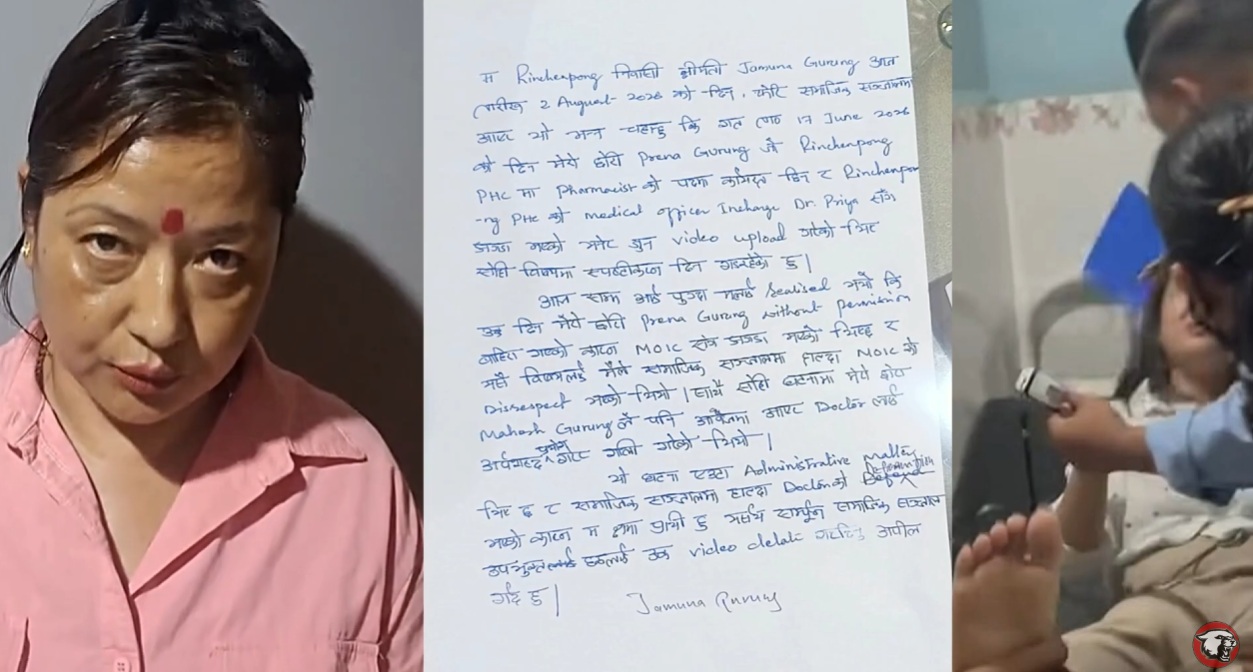 म Rinchenpong निवासी श्रीमती Jamuna Gurung आज
तारिख 2 August 2026 को दिन, फेरि सामाजिक सञ्जालमा
आएर यो भन्न चहान्छु कि गत 17 June 2026
को दिन मेरो छोरी Prena Gurung जो Rinchenpong
PHC मा Pharmacist को पदमा कार्यरत छिन र Rinchenpo
-ng PHC को medical officer Incharge Dr. Priya सँग
झगडा भएको भनेर जुन video upload गरेको थिए
सोही विषयमा स्पष्टीकरण दिन गइरहेको छु।
realised भयो कि
उक्त दिन मेरो छोरी Prena Gurung without permission
बाहिर गएको कारण MOIC सँग झगडा भएको थियो र
यसै विषयलाई मैले सामाजिक सञ्जालमा हाल्दा MOIC को
Disrespect भएको थियो। साथै सोही घटनामा मेरो छोरा
Mahesh Gurung ले पनि आवेशमा आएर Doctor लाई
गरेर गल्ती गरेको थियो।
यो घटना एउटा Administrative matter
थियो र सामाजिक सञ्जालमा हाल्दा Doctor को Defamation
भएको कारण म क्षमा प्रार्थी छु सामाजिक सञ्जाल
उक्त video delete गरिदिनु अपील
गर्दै छु।
Jamuna Gurung